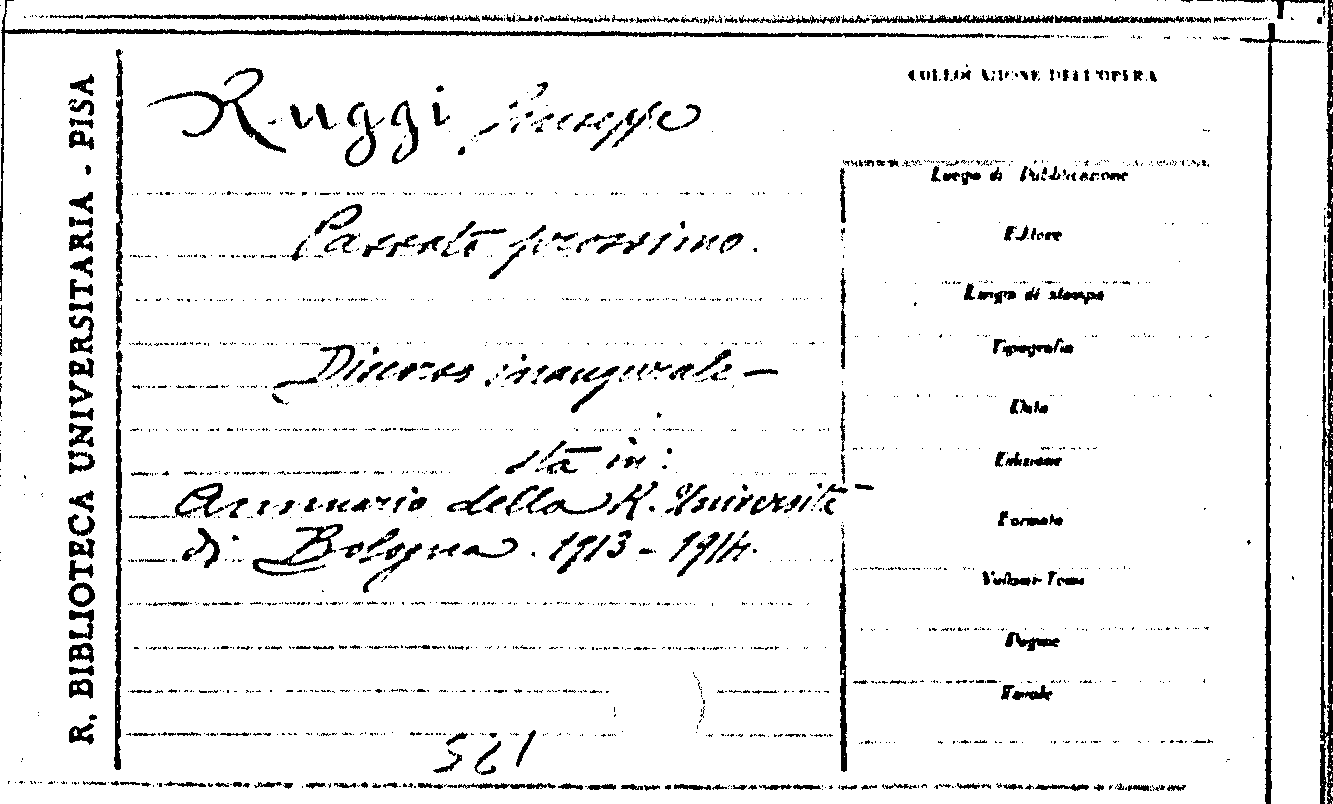 R. BIBLIOTECA UNIVERSITARIA - PISA
Ruggi Giuseppe
Passato prossimo.
Discorso inaugurale -
sta in:
Annuario della R. Università
di Bologna. 1913 - 1914.
521
COLLOCAZIONE DELL'OPERA
Luogo di Pubblicazione
Editore
Luogo di stampa
Tipografia
Data
Edizione
Formato
Volumi-Tomi
Pagine
Tavole